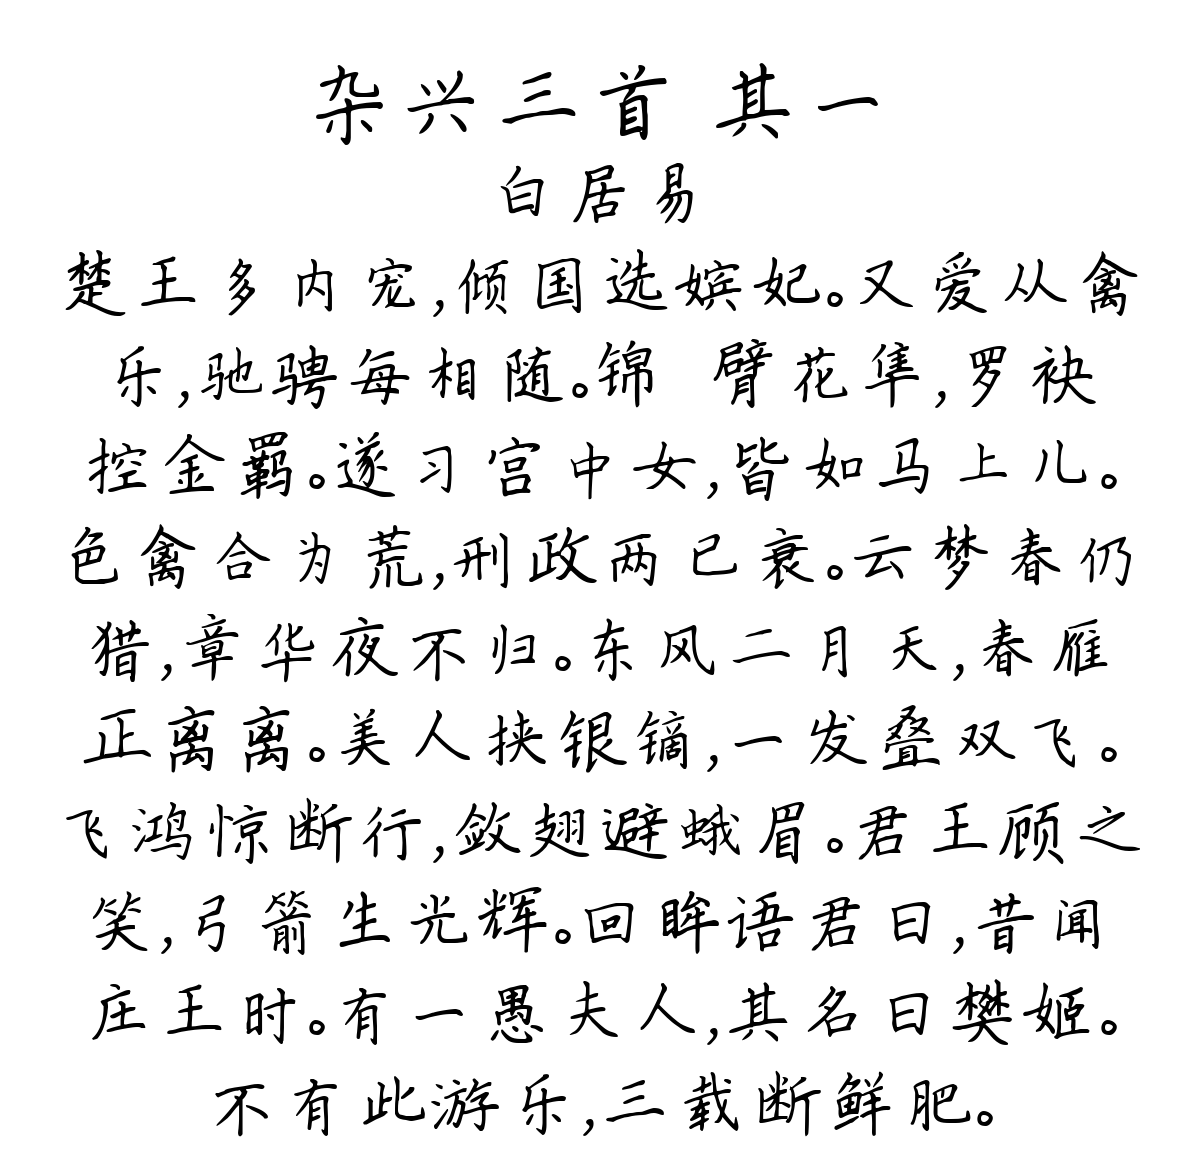 杂兴三首 其一
白居易
楚王多内宠,倾国选嫔妃。又爱从禽
乐,驰骋每相随。锦 臂花隼,罗袂
控金羁。遂习宫中女,皆如马上儿。
色禽合为荒,刑政两已衰。云梦春仍
猎,章华夜不归。东风二月天,春雁
正离离。美人挟银镝,一发叠双飞。
飞鸿惊断行,敛翅避蛾眉。君王顾之
笑,弓箭生光辉。回眸语君曰,昔闻
庄王时。有一愚夫人,其名曰樊姬。
不有此游乐,三载断鲜肥。